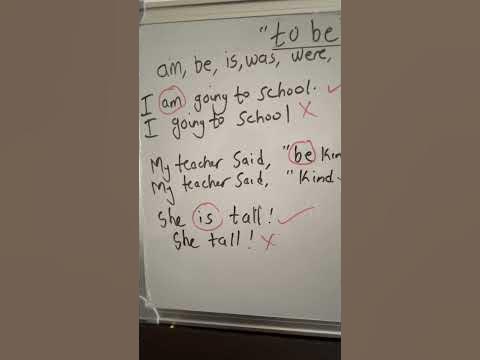 "to be"
am, be, is, was, were,
I am going to school.
I going to school
My teacher said, "be kin
My teacher said, "kind
She is tall!
She tall!